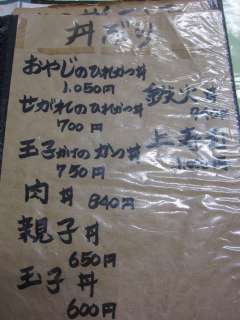 丼だり
おやじのひれかつ丼
1,050円
せがれのひれかつ丼
700円
玉子かけのかつ丼
750円
肉丼 840円
親子丼
650円
玉子丼
600円
鉄火丼
上寿司